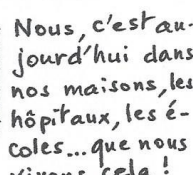 Nous, c'est au-
jourd'hui dans
nos maisons, les
hôpitaux, les é-
coles... que nous
vivons cela !